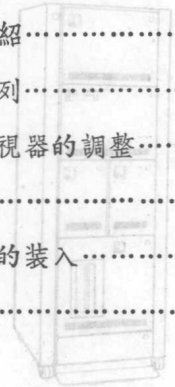 紹……………
列……………
視器的調整……
……………
的装入………
……………